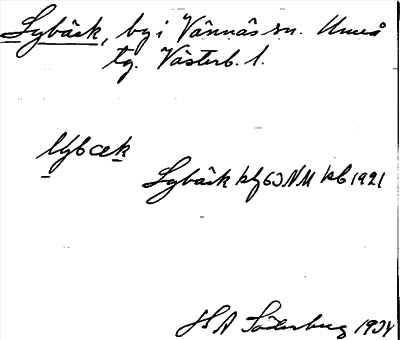 Lybäck, by i Vännäs sn. Umeå
tg. Västerb. l.
lybæk
Lybäck kbl 63 NM kb 1921
Söderberg 1934